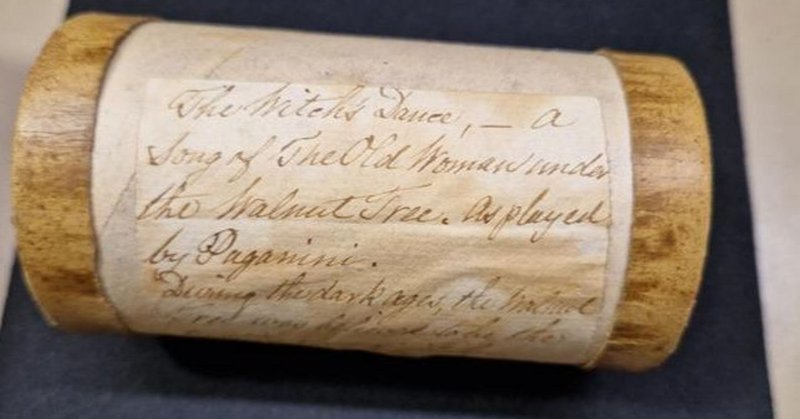 The Witch's Dance, — a
Song of The Old Woman under
the Walnut Tree. As played
by Paganini.
During the dark ages, the Walnut
Tree was
the